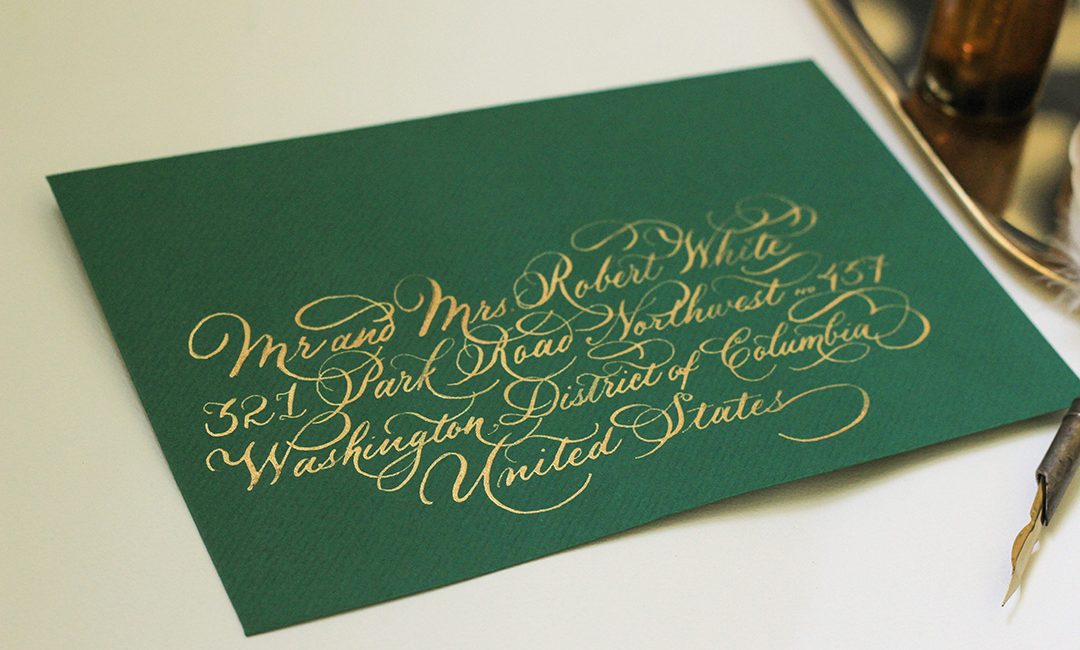 Mr and Mrs. Robert White
321 Park Road Northwest no 457
Washington, District of Columbia
United States